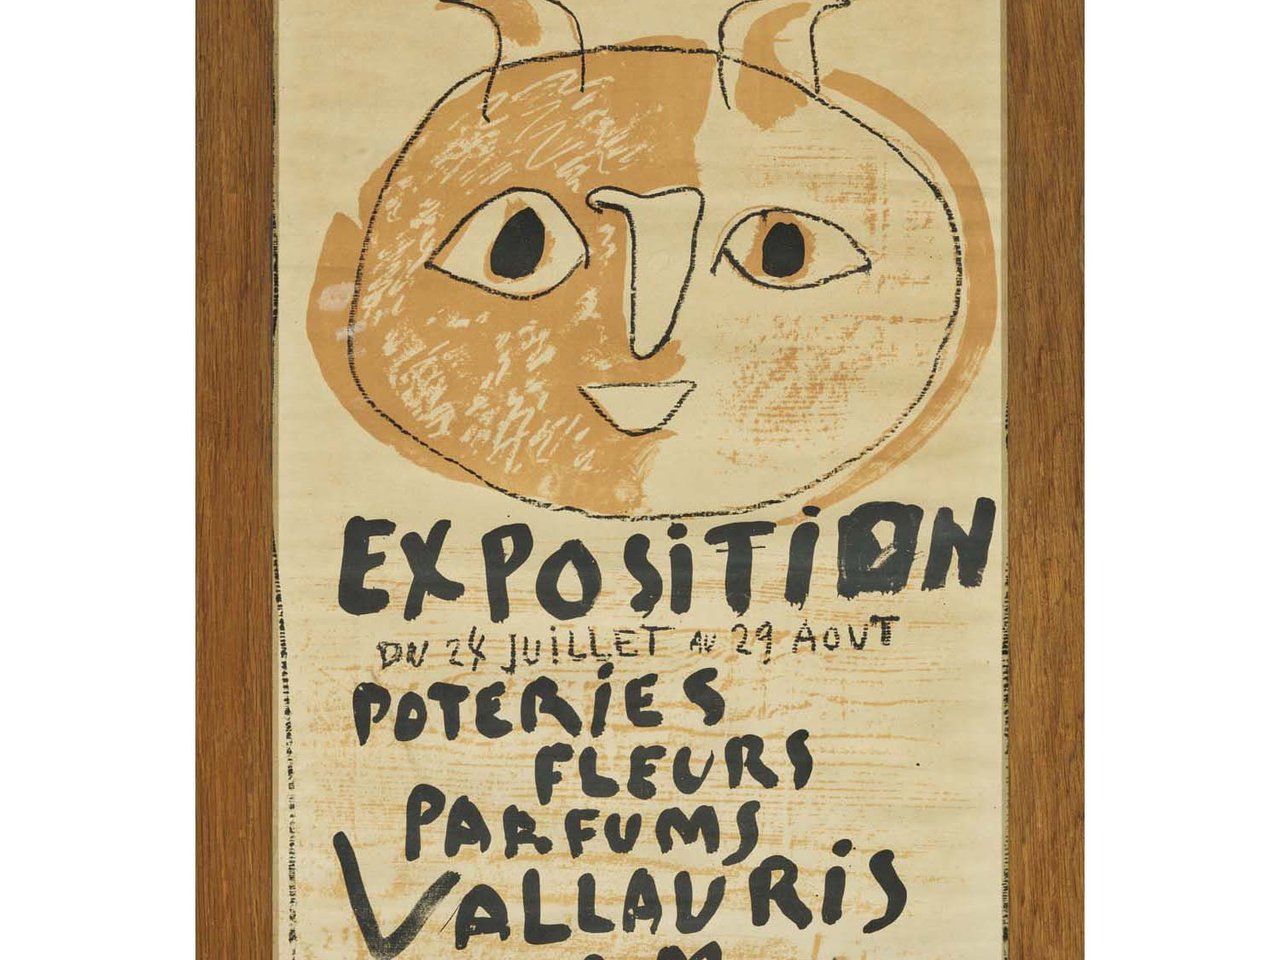 EXPOSITION
DU 24 JUILLET AU 29 AOUT
POTERIES
FLEURS
PARFUMS
VALLAURIS